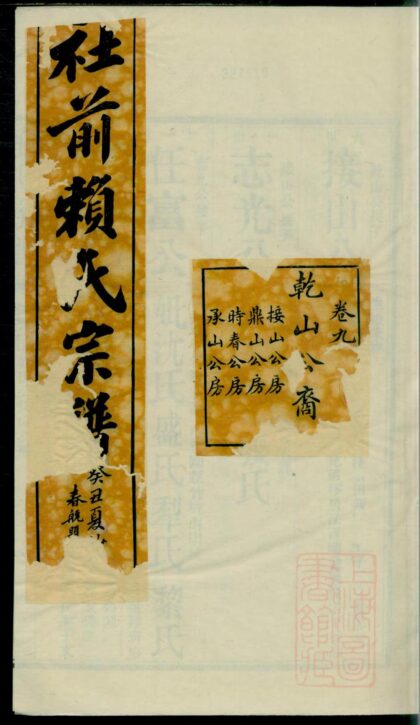 社前賴氏宗譜
癸丑夏
春航題
卷九
乾山公裔
接山公房
鼎山公房
時春公房
承山公房
上海圖
書館藏
接山公
志光公
任富公